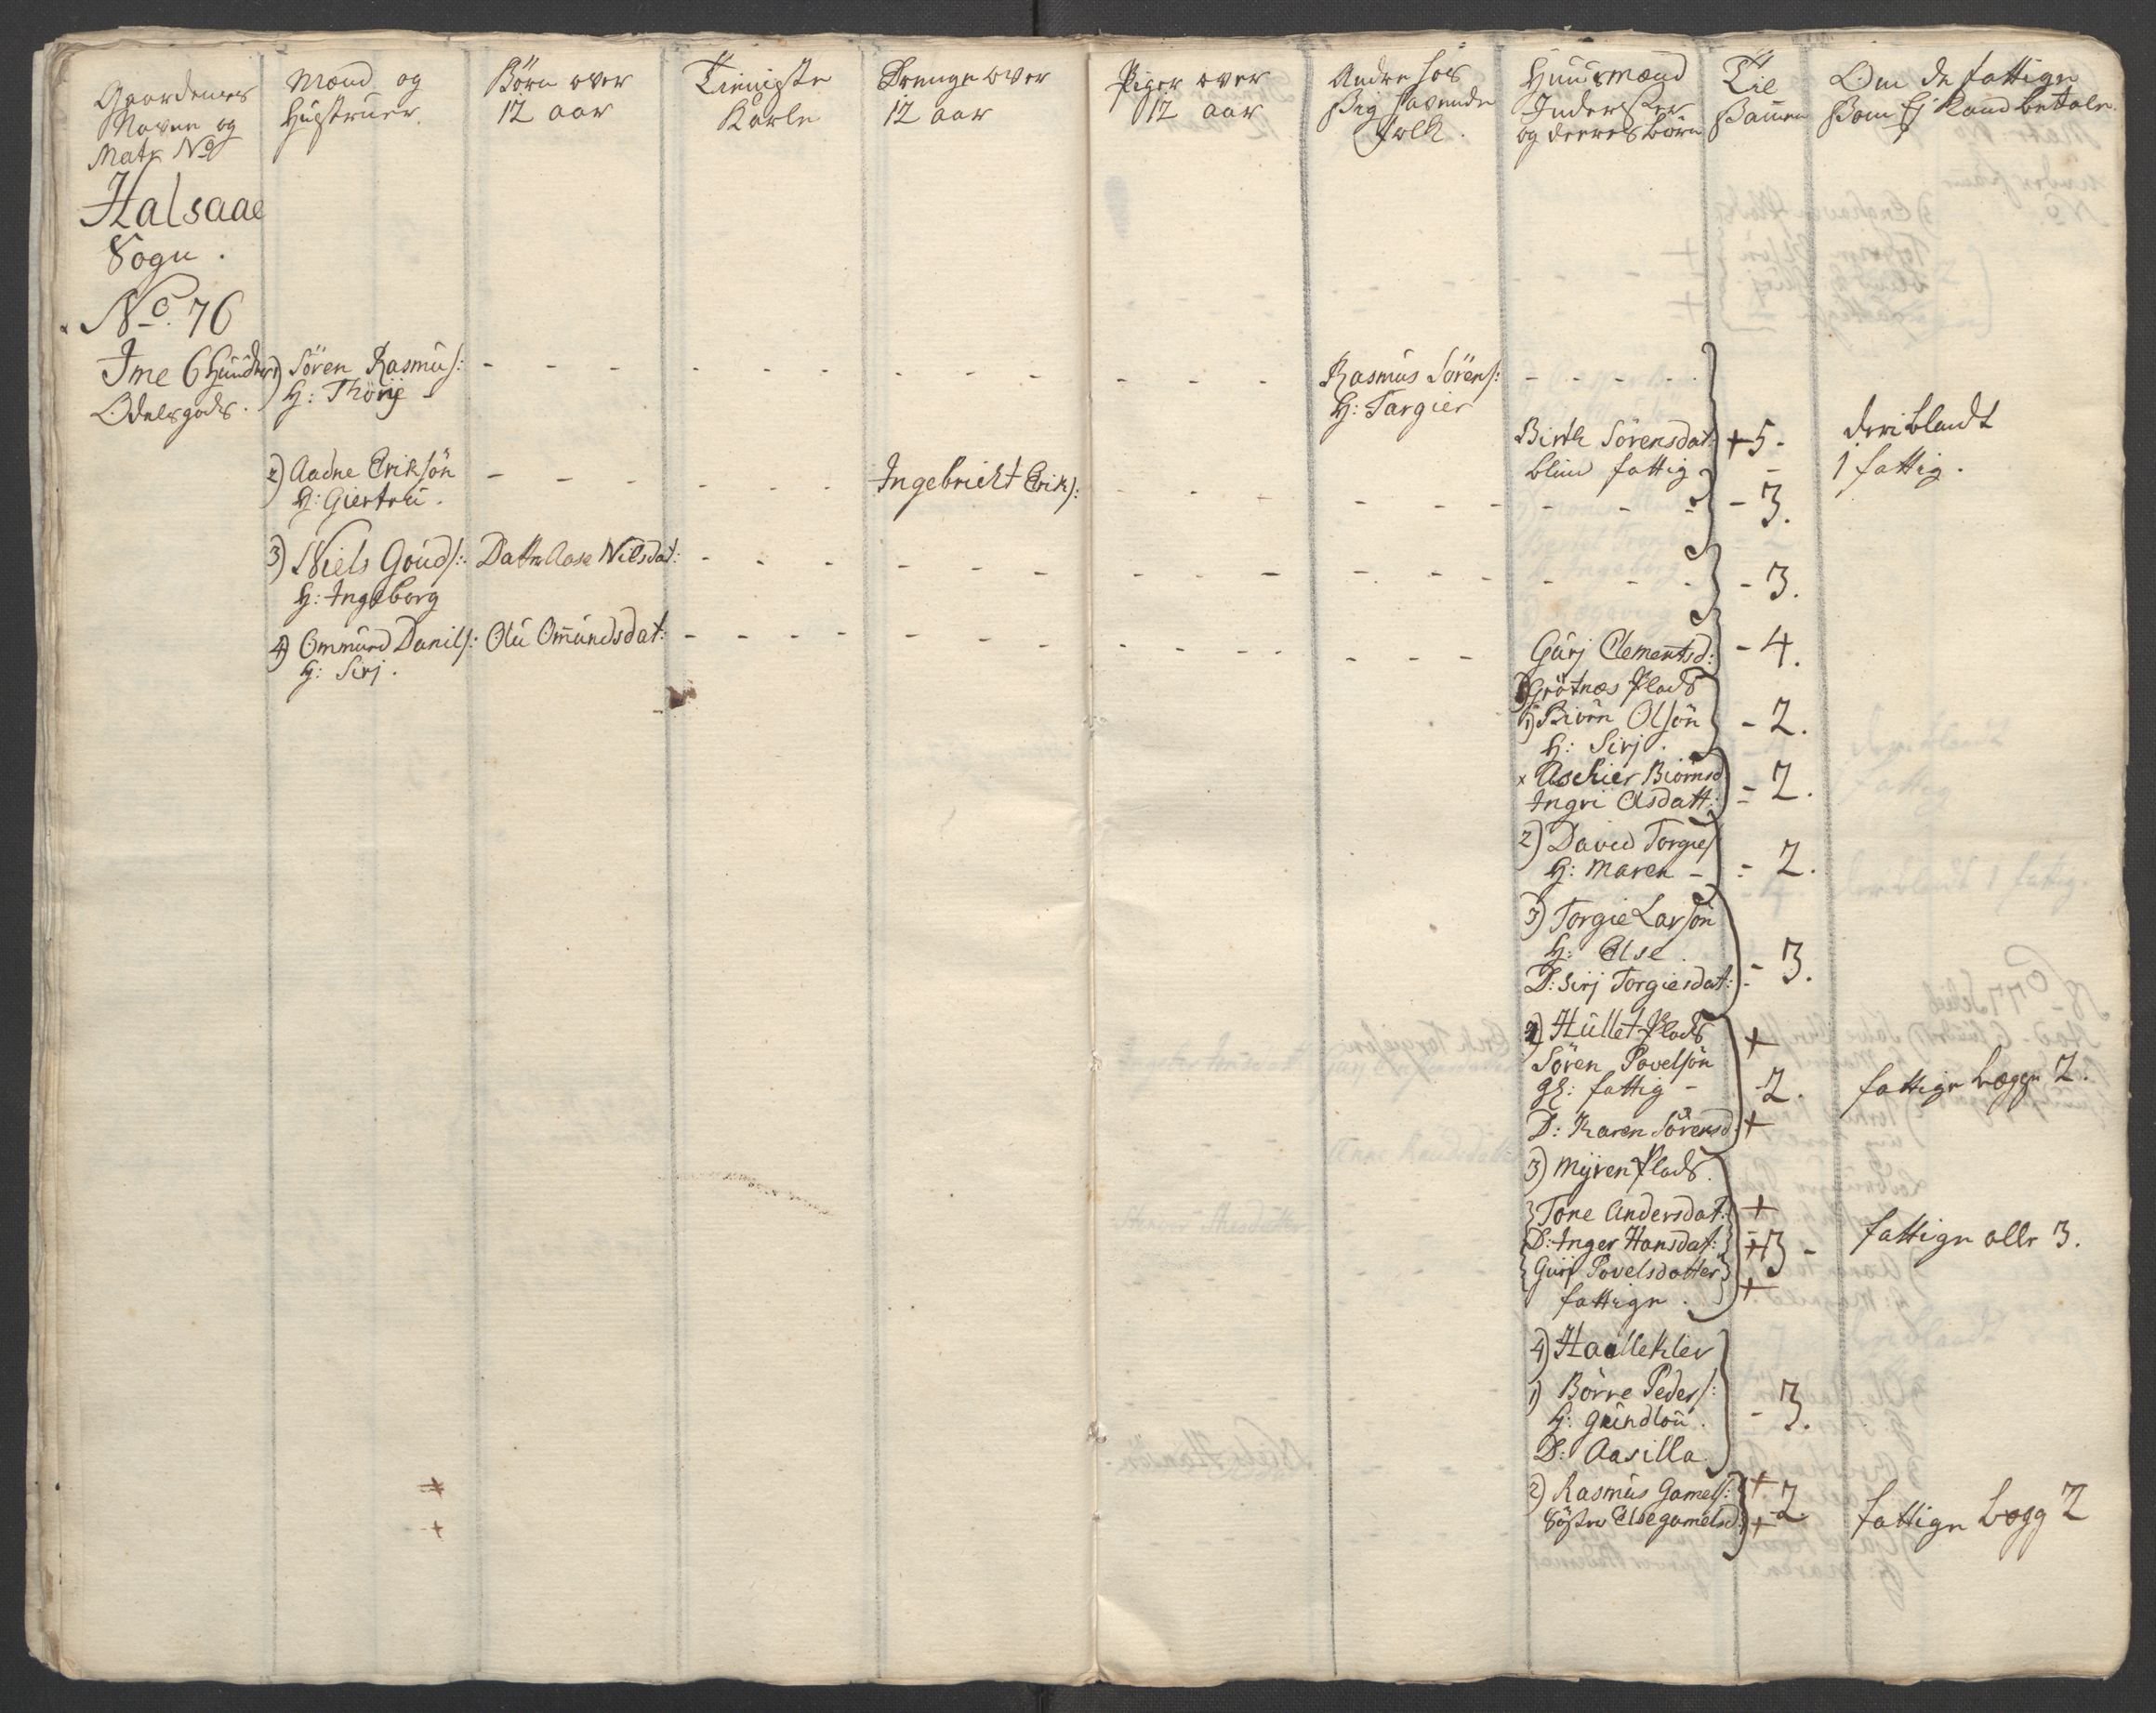 Gaardenes
Navne og
Matr No
Mænd og
Hustruer
Börn over
12 aar
Tienniste
Karle
Drenge over
12 aar
Piger over
12 aar
Andre hos
Sig havende
Folk.
Huusmænd
Inderster
og deeres börn
Til
Samen
Om de fattige
Som Ej Kand betale.
Halsaae
Sogn.
No. 76
Ime 6 Huuder
Odelsgods.
1) Sören Rasmus:
H: Thörij
Rasmus Sörens:
H: Targier
Birth Sörensdat:
blin fattig
+5-
deriblandt
1 fattig.
2) Aadne Eriksön
H: Giertru.
Ingebricht Eriks:
- 3.
3) Niels Gouds:
H: Ingeborg
Datter Aase Nilsdat:
- 3.
4) Ommund Danils:
H: Sirj.
Olu Omundsdat:
Gurj Clementsd:
- 4.
Grötnæs Plads
1) Biörn Olsön
H: Sirj.
- 2.
x Aschier Biörnsd
Ingri Olsdatt:
= 2.
2) David Torgies
H: Maren -
= 2.
3) Torgie Larsön
H: Else.
D: Sirj Torgiesdat:
- 3.
2) Hullet Plads
Sören Povelsön
gl: fattig -
D: Karen Sörensd:
+
-2.
+
fattige begge 2.
3) Myren Plads.
Tone Andersdat:
D: Inger Hansdat:
Gurj Povelsdatter
fattige.
+
+3-
+
fattige alle 3.
4) Haalleklev
1) Börre Peders:
H: Gundlou.
D: Aasilla
- 3.
2) Rasmus Gamels:
Söster Else gamelsd:
+
-2.
+
fattige begg 2